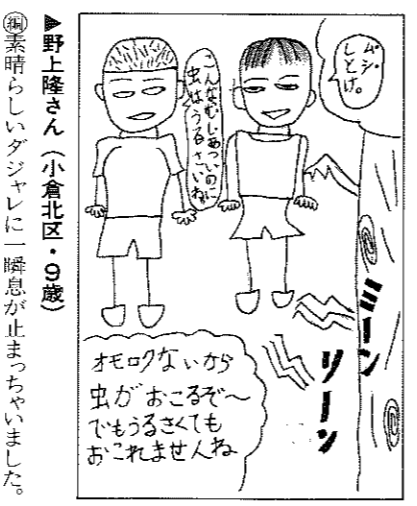 ムシ
しとけ。
こんなむしあついのに
虫はうるさいね
ミーン
リーン
オモロクないから
虫がおこるぞ〜
でもうるさくても
おこれませんね
▶野上隆さん(小倉北区・9歳)
編素晴らしいダジャレに一瞬息が止まっちゃいました。